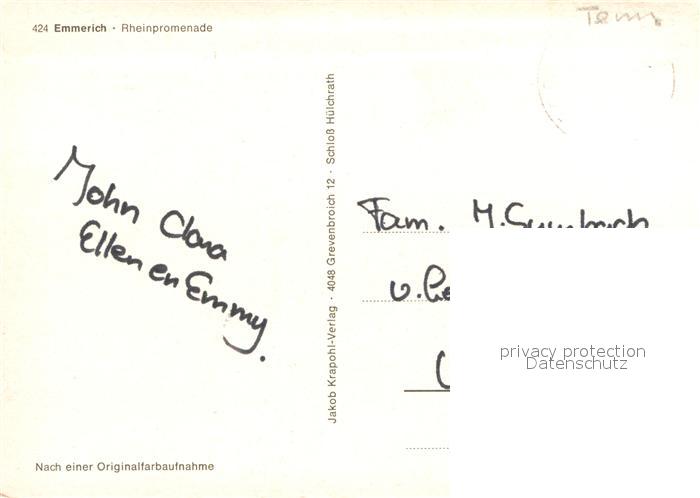 424 Emmerich · Rheinpromenade
John Clara
Ellen en Emmy.
Jakob Krapohl-Verlag · 4048 Grevenbroich 12 · Schloß Hülchrath
Fam. M.
v.
privacy protection
Datenschutz
Nach einer Originalfarbaufnahme